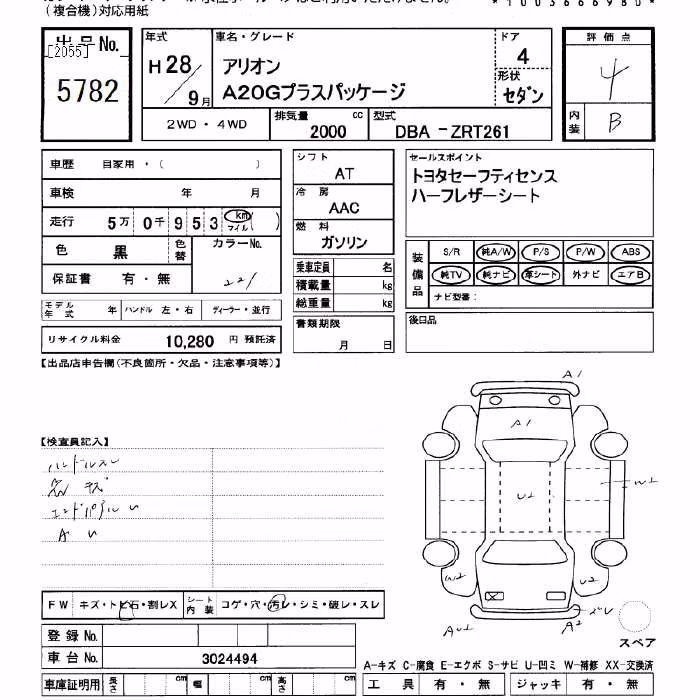 (複合機)対応用紙
*10036666980*
出品No.
[2055]
5782
年式
H28/9月
車名・グレード
アリオン
A20Gプラスパッケージ
ドア
4
形状
セダン
2WD・4WD
排気量
2000 cc
型式
DBA-ZRT261
評価点
4
内装
B
車歴 自家用・( )
車検 年 月
走行 5万 0千 9 5 3 km マイル( )
色 黒 色替 カラーNo.
221
保証書 有・無
モデル年式 年 ハンドル 左・右 ディーラー・並行
リサイクル料金 10,280 円 預託済
シフト
AT
冷房
AAC
燃料
ガソリン
乗車定員 名
積載量 kg
総重量 kg
書類期限
月 日
セールスポイント
トヨタセーフティセンス
ハーフレザーシート
装備品
S/R 純A/W P/S P/W ABS
純TV 純ナビ 革シート 外ナビ エアB
ナビ型番:
後日品
【出品店申告欄(不良箇所・欠品・注意事項等)】
【検査員記入】
ハンドルスレ
内 キズ
エンドパネル U
A U
A1
A1
U1
W1
W2
U2
AU1
A2
ズレ
スペア
FW キズ・トビ石・割レX シート内装 コゲ・穴・汚レ・シミ・破レ・スレ
登録No.
車台No. 3024494
車庫証明用 長さ cm 幅 cm 高さ cm
A-キズ C-腐食 E-エクボ S-サビ U-凹ミ W-補修 XX-交換済
工具 有・無 ジャッキ 有・無